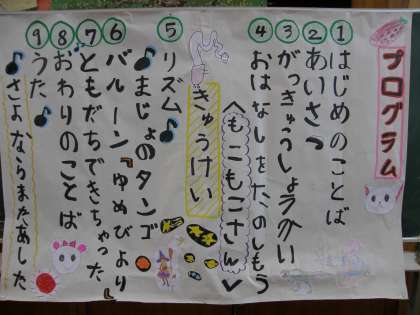 プログラム
①はじめのことば
②あいさつ
③がっきゅうしょうかい
④おはなしをたのしもう
〈もこもこさん〉
きゅうけい
⑤リズム♪
♪まじょのタンゴ
⑥バルーン『ゆめびより』
⑦ともだちできちゃった
⑧おわりのことば
⑨うた♪
♪さよならまたあした